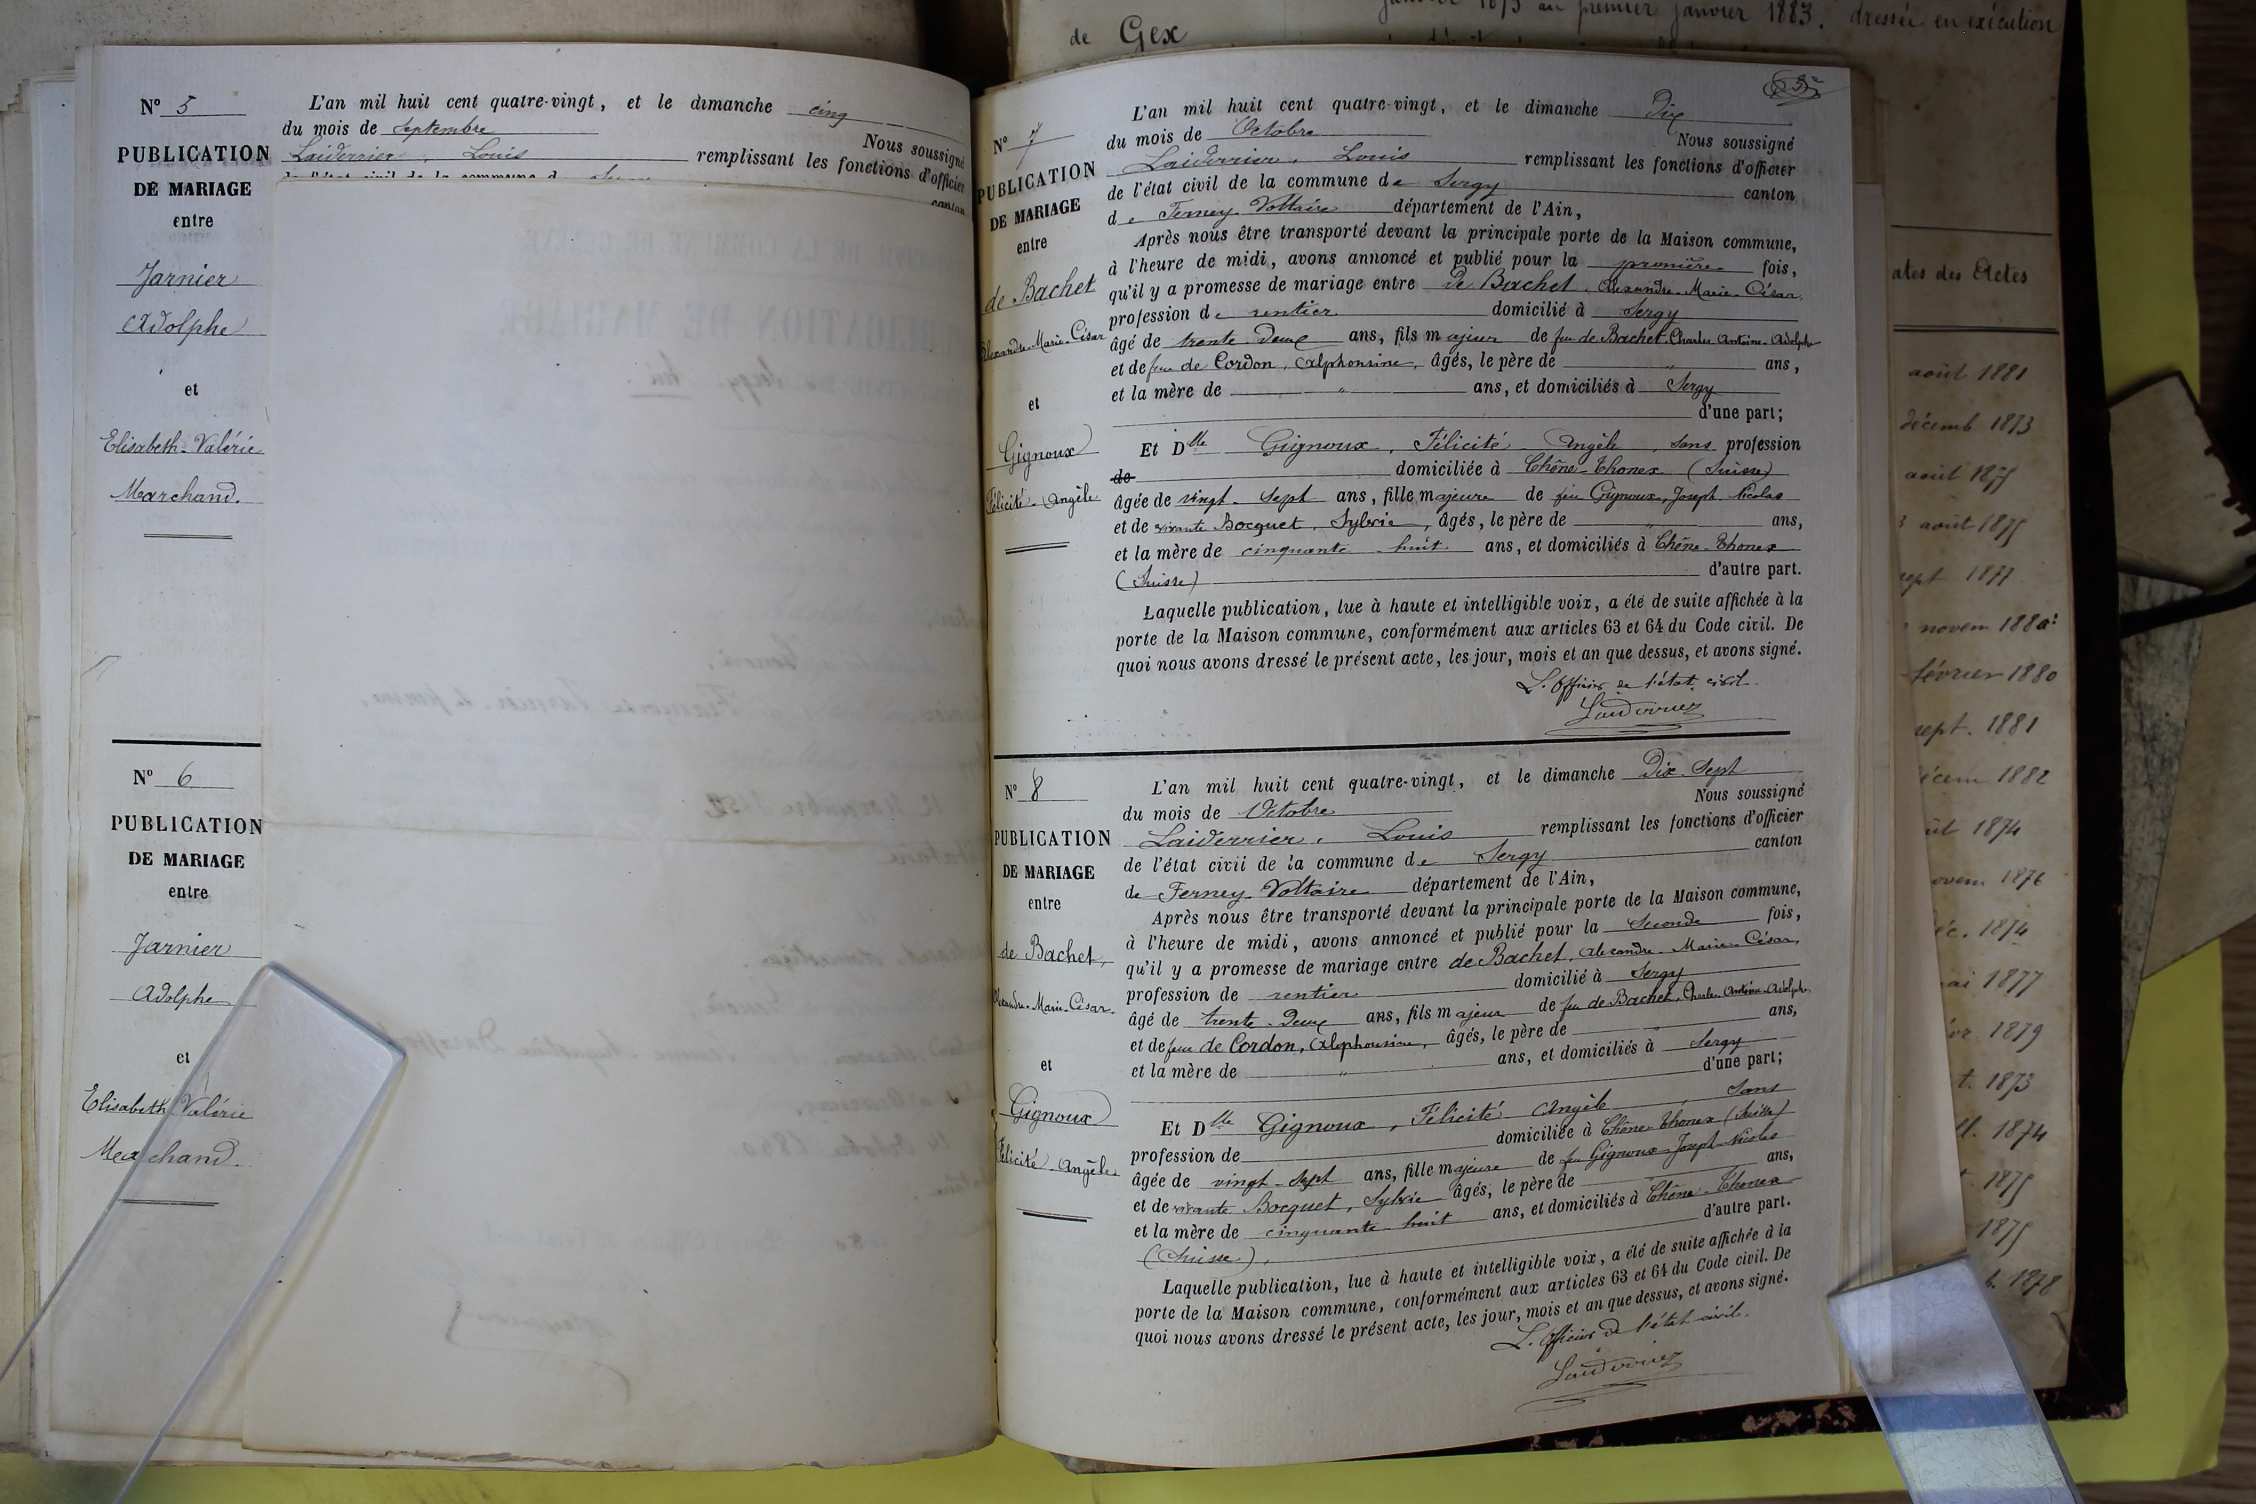 de Gex
janvier 1873 au premier janvier 1883. dressée en exécution
N° 5
PUBLICATION
DE MARIAGE
entre
Jarnier
Adolphe
et
Elisabeth-Valérie
Marchand.
L'an mil huit cent quatre-vingt, et le dimanche cinq
du mois de Septembre Nous soussigné
Laiderrier, Louis remplissant les fonctions d'officier
canton
N° 6
PUBLICATION
DE MARIAGE
entre
Jarnier
Adolphe
et
Elisabeth Valérie
Marchand.
N° 7
PUBLICATION
DE MARIAGE
entre
de Bachet
Alexandre-Marie-César
et
Gignoux
Félicité-Angèle
L'an mil huit cent quatre-vingt, et le dimanche Dix
du mois de Octobre Nous soussigné
Laiderrier, Louis remplissant les fonctions d'officier
de l'état civil de la commune de Sergy canton
de Ferney-Voltaire département de l'Ain,
Après nous être transporté devant la principale porte de la Maison commune,
à l'heure de midi, avons annoncé et publié pour la première fois,
qu'il y a promesse de mariage entre de Bachet, Alexandre-Marie-César,
profession de rentier domicilié à Sergy
âgé de trente-Deux ans, fils majeur de feu de Bachet, Charles-Antoine-Adolphe
et de feue de Cordon, Alphonsine, âgés, le père de " ans,
et la mère de " ans, et domiciliés à Sergy
d'une part;
Et Dlle Gignoux, Félicité Angèle, sans profession
de domiciliée à Chêne-Thonex (Suisse)
âgée de vingt-sept ans, fille majeure de feu Gignoux, Joseph-Nicolas
et de vivante Bocquet, Sylvie, âgés, le père de " ans,
et la mère de cinquante-huit ans, et domiciliés à Chêne-Thonex
(Suisse) d'autre part.
Laquelle publication, lue à haute et intelligible voix, a été de suite affichée à la
porte de la Maison commune, conformément aux articles 63 et 64 du Code civil. De
quoi nous avons dressé le présent acte, les jour, mois et an que dessus, et avons signé.
L'officier de l'état civil.
Laiderrier
N° 8
PUBLICATION
DE MARIAGE
entre
de Bachet,
Alexandre-Marie-César.
et
Gignoux
Félicité-Angèle.
L'an mil huit cent quatre-vingt, et le dimanche Dix-Sept
du mois de Octobre Nous soussigné
Laiderrier, Louis remplissant les fonctions d'officier
de l'état civil de la commune de Sergy canton
de Ferney-Voltaire département de l'Ain,
Après nous être transporté devant la principale porte de la Maison commune,
à l'heure de midi, avons annoncé et publié pour la Seconde fois,
qu'il y a promesse de mariage entre de Bachet, Alexandre-Marie-César,
profession de rentier domicilié à Sergy
âgé de trente-Deux ans, fils majeur de feu de Bachet, Charles-Antoine-Adolphe
et de feue de Cordon, Alphonsine, âgés, le père de " ans,
et la mère de " ans, et domiciliés à Sergy
d'une part;
Et Dlle Gignoux, Félicité Angèle Sans
profession de domiciliée à Chêne-Thonex (Suisse)
âgée de vingt-Sept ans, fille majeure de feu Gignoux-Joseph-Nicolas
et de vivante Bocquet, Sylvie âgés, le père de " ans,
et la mère de cinquante-huit ans, et domiciliés à Chêne-Thonex
(Suisse). d'autre part.
Laquelle publication, lue à haute et intelligible voix, a été de suite affichée à la
porte de la Maison commune, conformément aux articles 63 et 64 du Code civil. De
quoi nous avons dressé le présent acte, les jour, mois et an que dessus, et avons signé.
L'officier de l'état civil.
Laiderrier
ates des Actes
août 1881
décemb 1873
août 1875
août 1875
sept 1877
novem 1880
février 1880
sept. 1881
décem 1882
1874
novem 1876
1874
1877
1879
t. 1873
1874
1875
1875
1878